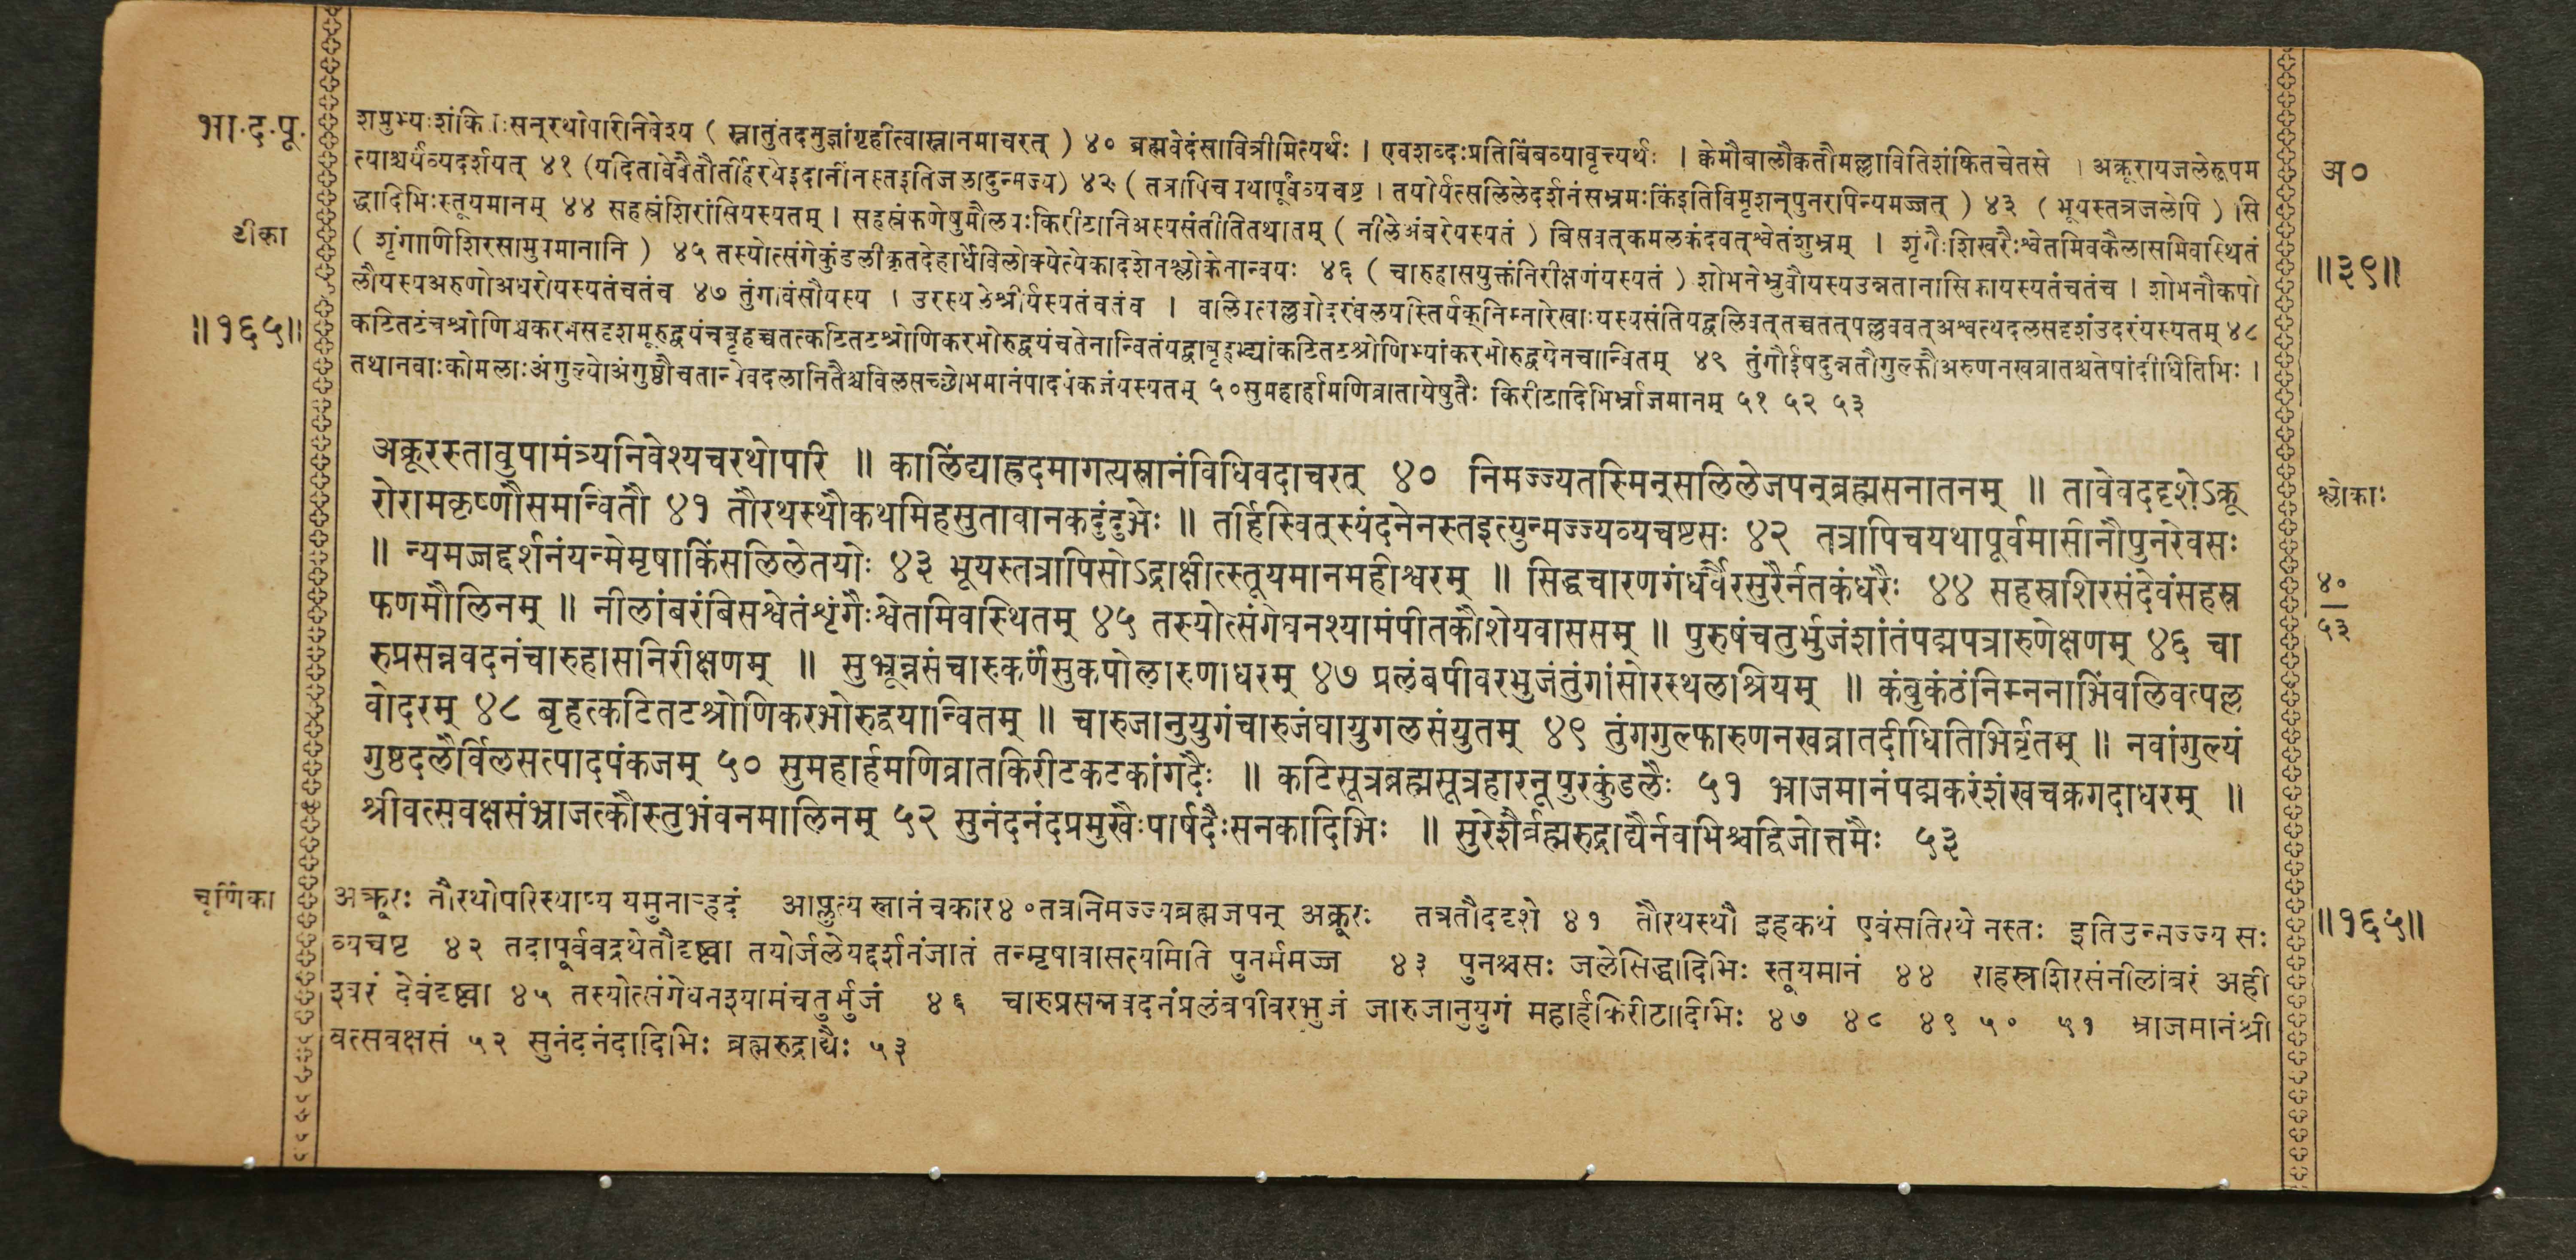 भा.द.पू.
शत्रुभ्यःशंकितःसन्रथोपरिनिवेश्य ( स्नातुंतदनुज्ञांगृहीत्वास्नानमाचरत् ) ४० ब्रह्मवेदंसावित्रीमित्यर्थः । एवशब्दःप्रतिबिंबव्यावृत्त्यर्थः । केमौबालौकतौमल्लावितिशंकितचेतसे । अक्रूरायजलेरूपम
अ०
त्याश्चर्यंव्यदर्शयत् ४१ (यदितावेवैतौतर्हिरथेइदानींनस्तइतिजलादुन्मज्य) ४२ ( तत्रापिचयथापूर्वंव्यचष्ट । तयोर्यत्सलिलेदर्शनंसभ्रमःकिंइतिविमृशन्पुनरापिन्यमज्जत् ) ४३ ( भूयस्तत्रजलेपि ) सि
टीका
द्धादिभिःस्तूयमानम् ४४ सहस्रंशिरांसियस्यतम् । सहस्रंफणेषुमौलयःकिरीटानिअस्यसंतीतितथातम् ( नीलेअंबरेयस्यतं ) बिसवत्कमलकंदवत्श्वेतंशुभ्रम् । शृंगैःशिखरैःश्वेतमिवकैलासमिवास्थितं
॥३९॥
( शृंगाणिशिरसामुपमानानि ) ४५ तस्योत्संगेकुंडलीकृतदेहार्धेविलोक्येत्येकादशेनश्लोकेनान्वयः ४६ ( चारुहासयुक्तंनिरीक्षणंयस्यतं ) शोभनेभ्रुवौयस्यउन्नतानासिकायस्यतंचतंच । शोभनौकपो
लौयस्यअरुणोअधरोयस्यतंचतंच ४७ तुंगावंसौयस्य । उरस्थलेश्रीर्यस्यतंचतंच । वलिवत्पल्लवोदरंवलयस्तिर्यक्निम्नारेखाःयस्यसंतियद्वलिवत्तच्चतत्पल्लववत्अश्वत्थदलसदृशंउदरंयस्यतम् ४८
॥१६५॥
कटितटंचश्रोणिश्चकरभसदृशमूरुद्वयंचबृहच्चतत्कटितटश्रोणिकरभोरुद्वयंचतेनान्वितंयद्वाबृहद्भ्यांकटितटश्रोणिभ्यांकरभोरुद्वयेनचान्वितम् ४९ तुंगौईषदुन्नतौगुल्फौअरुणनखव्रातश्चतेषांदीधितिभिः ।
तथानवाःकोमलाःअंगुल्योअंगुष्ठौचतान्येवदलानितैश्चविलसच्छोभमानंपादपंकजंयस्यतम् ५०सुमहार्हामणिव्रातायेषुतैः किरीटादिभिर्भ्राजमानम् ५१ ५२ ५३
अक्रूरस्तावुपामंत्र्यनिवेश्यचरथोपरि ॥ कालिंद्याह्रदमागत्यस्नानंविधिवदाचरत् ४० निमज्ज्यतस्मिन्सलिलेजपन्ब्रह्मसनातनम् ॥ तावेवददृशेऽक्रू
श्लोकाः
रोरामकृष्णौसमन्वितौ ४१ तौरथस्थौकथमिहसुतावानकदुंदुभेः ॥ तर्हिस्वित्स्यंदनेनस्तइत्युन्मज्ज्यव्यचष्टसः ४२ तत्रापिचयथापूर्वमासीनौपुनरेवसः
॥ न्यमज्जद्दर्शनंयन्मेमृषाकिंसलिलेतयोः ४३ भूयस्तत्रापिसोऽद्राक्षीत्स्तूयमानमहीश्वरम् ॥ सिद्धचारणगंधर्वैरसुरैर्नतकंधरैः ४४ सहस्रशिरसंदेवंसहस्र
४०
फणमौलिनम् ॥ नीलांबरंबिसश्वेतंशृंगैःश्वेतमिवस्थितम् ४५ तस्योत्संगेघनश्यामंपीतकौशेयवाससम् ॥ पुरुषंचतुर्भुजंशांतंपद्मपत्रारुणेक्षणम् ४६ चा
५३
रुप्रसन्नवदनंचारुहासनिरीक्षणम् ॥ सुभ्रून्नसंचारुकर्णंसुकपोलारुणाधरम् ४७ प्रलंबपीवरभुजंतुंगांसोरस्थलाश्रियम् ॥ कंबुकंठंनिम्ननाभिंवलिवत्पल्ल
वोदरम् ४८ बृहत्कटितटश्रोणिकरभोरुद्वयान्वितम् ॥ चारुजानुयुगंचारुजंघायुगलसंयुतम् ४९ तुंगगुल्फारुणनखव्रातदीधितिभिर्वृतम् ॥ नवांगुल्यं
गुष्ठदलैर्विलसत्पादपंकजम् ५० सुमहार्हमणिव्रातकिरीटकटकांगदैः ॥ कटिसूत्रब्रह्मसूत्रहारनूपुरकुंडलैः ५१ भ्राजमानंपद्मकरंशंखचक्रगदाधरम् ॥
श्रीवत्सवक्षसंभ्राजत्कौस्तुभंवनमालिनम् ५२ सुनंदनंदप्रमुखैःपार्षदैःसनकादिभिः ॥ सुरेशैर्ब्रह्मरुद्राद्यैर्नवभिश्चद्विजोत्तमैः ५३
चूर्णिका
अक्रूरः तौरथोपरिस्थाप्य यमुनाऱ्हदं आप्लुत्य स्नानंचकार४०तत्रनिमज्ज्यब्रह्मजपन् अक्रूरः तत्रतौददृशे ४१ तौरथस्थौ इहकथं एवंसतिरथे नस्तः इतिउन्मज्ज्य सः
॥१६५॥
व्यचष्ट ४२ तदापूर्ववद्रथेतौदृष्ट्वा तयोर्जलेयद्दर्शनंजातं तन्मृषावासत्यमिति पुनर्ममज्ज ४३ पुनश्चसः जलेसिद्धादिभिः स्तूयमानं ४४ राहस्रशिरसंनीलांबरं अही
श्वरं देवंदृष्ट्वा ४५ तस्योत्संगेघनश्यामंचतुर्भुजं ४६ चारुप्रसन्नवदनंप्रलंबपीवरभुजं जारुजानुयुगं महार्हकिरीटादिभिः ४७ ४८ ४९ ५० ५१ भ्राजमानंश्री
वत्सवक्षसं ५२ सुनंदनंदादिभिः ब्रह्मरुद्राद्यैः ५३